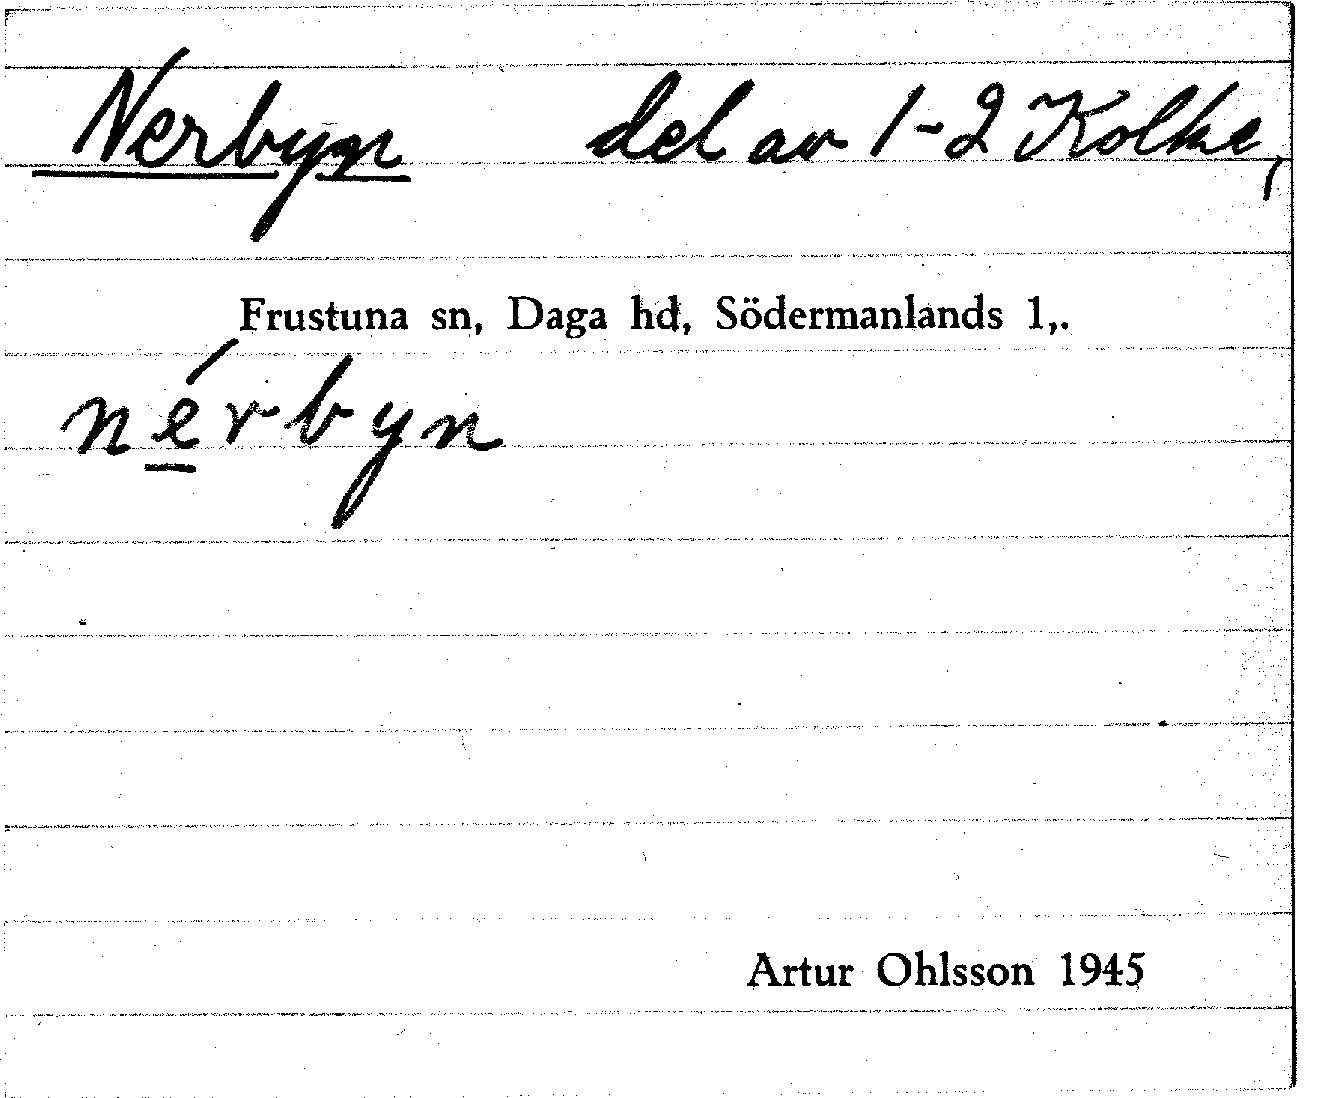 Nerbyn del av 1-2 Kolke,
Frustuna sn, Daga hd, Södermanlands l,.
nérbyn
Artur Ohlsson 1945